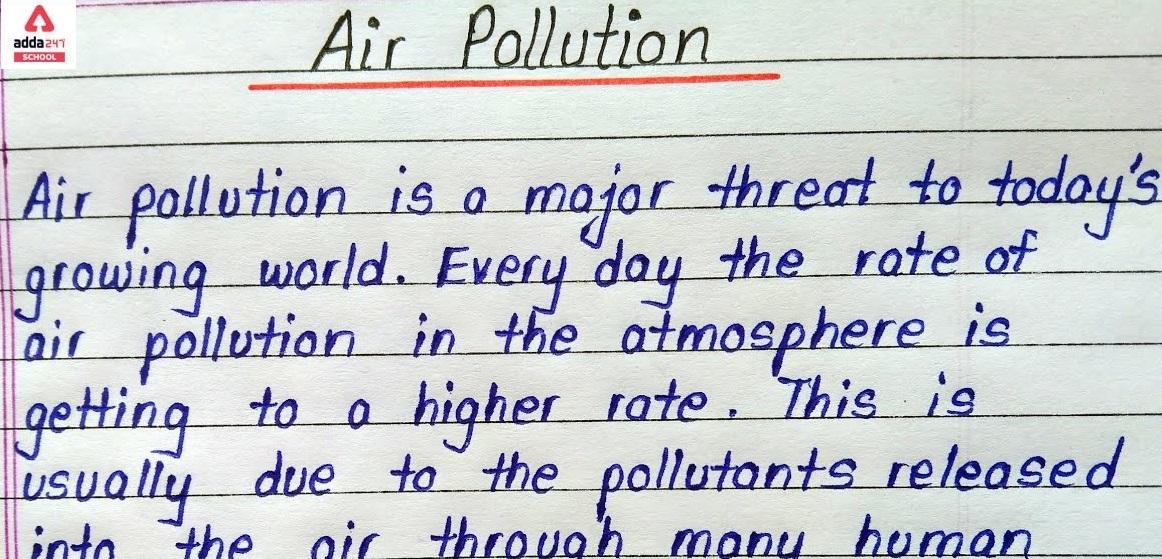 adda247
SCHOOL
Air Pollution
Air pollution is a major threat to today's
growing world. Every day the rate of
air pollution in the atmosphere is
getting to a higher rate. This is
usually due to the pollutants released
into the air through many human